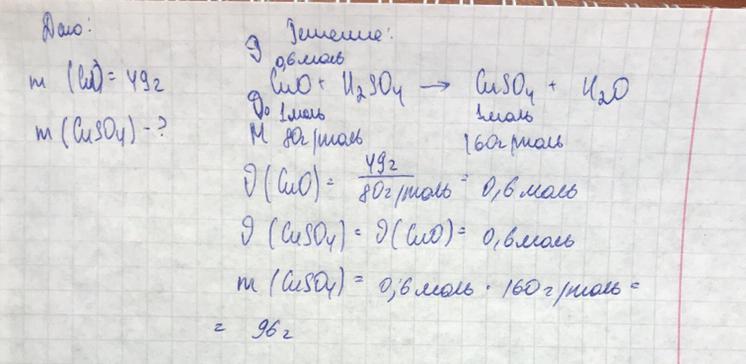 Дано:
m (CuO) = 49г
m (CuSO4) - ?
Решение:
ν 0,6моль
CuO + H2SO4 → CuSO4 + H2O
ν0 1моль 1моль
M 80г/моль 160г/моль
ν (CuO) = 49г / 80г/моль = 0,6моль
ν (CuSO4) = ν (CuO) = 0,6моль
m (CuSO4) = 0,6моль · 160г/моль =
= 96г